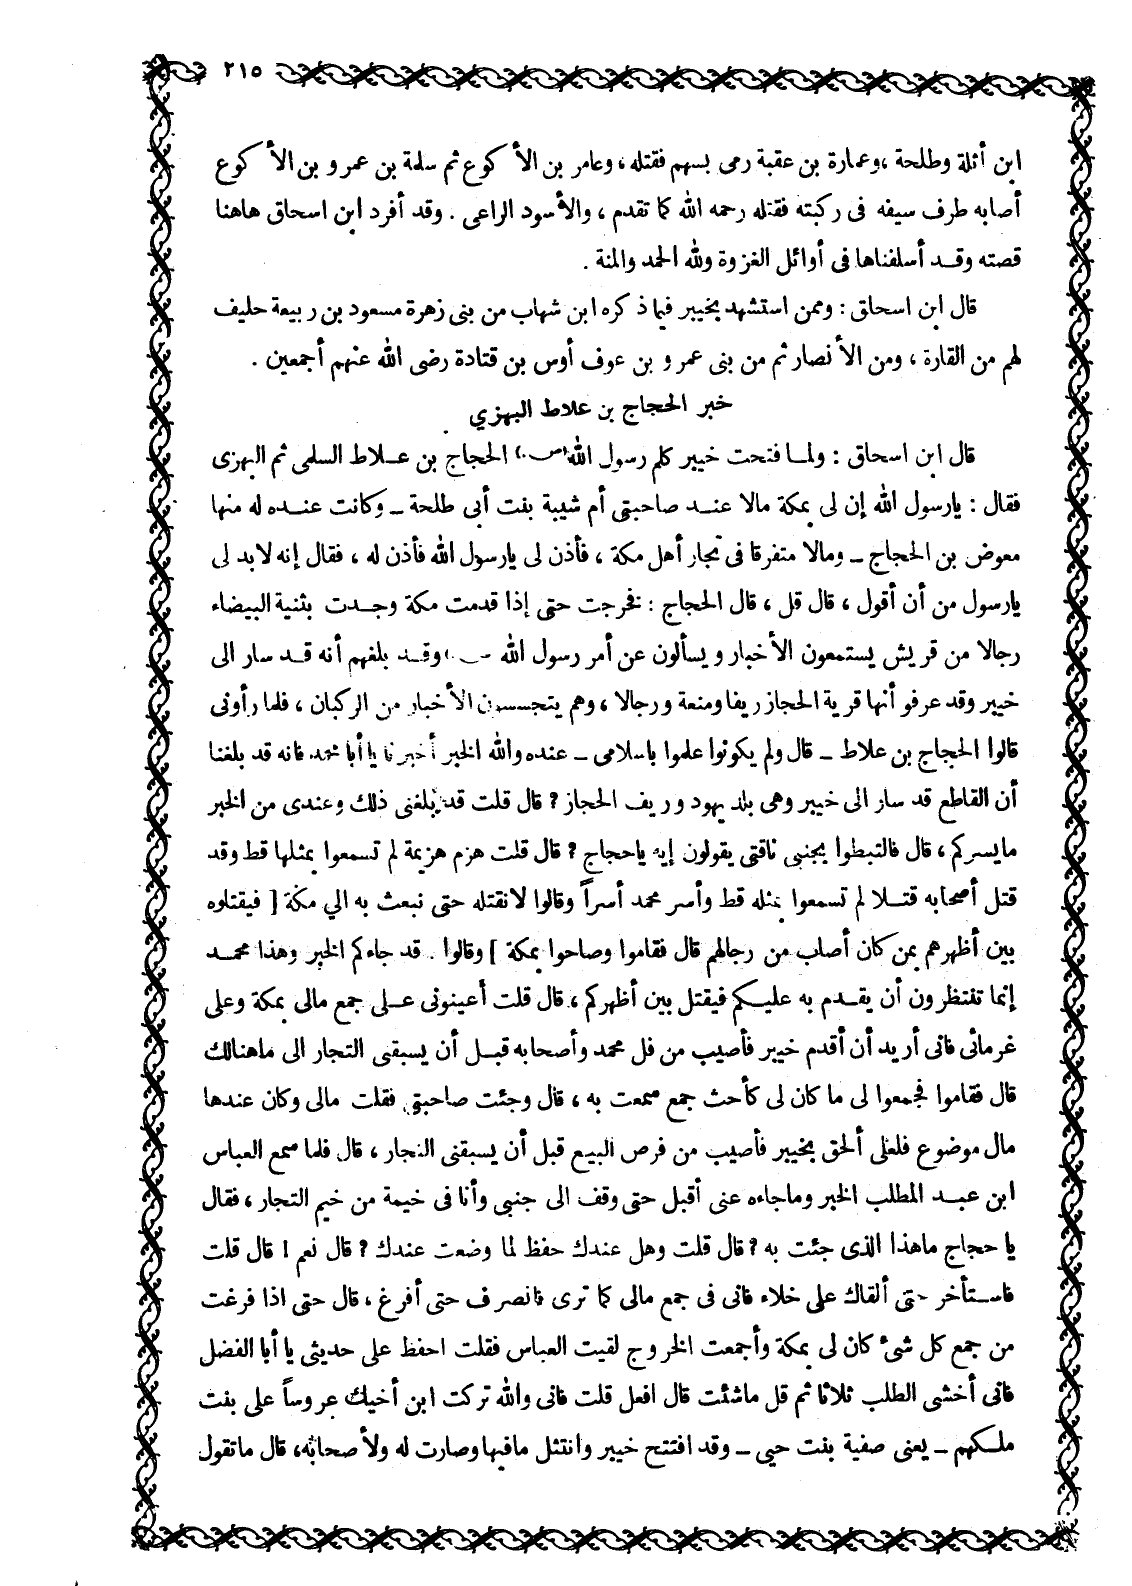 ٢١٥
ابن أثلة وطلحة ،وعمارة بن عقبة رمى بسهم فقتله ، وعامر بن الأكوع ثم سلمة بن عمرو بن الأكوع
أصابه طرف سيفه فى ركبته فقتله رحمه الله كما تقدم ، والأسود الراعى . وقد أفرد ابن اسحاق هاهنا
قصته وقد أسلفناها فى أوائل الغزوة ولله الحمد والمنة .
قال ابن اسحاق : وممن استشهد بخيبر فيما ذكره ابن شهاب من بنى زهرة مسعود بن ربيعة حليف
لهم من القارة ، ومن الأنصار ثم من بنى عمرو بن عوف أوس بن قتادة رضى الله عنهم أجمعين .
خبر الحجاج بن علاط البهزي
قال ابن اسحاق : ولما فتحت خيبر كلم رسول الله (ص) الحجاج بن علاط السلمى ثم البهزى
فقال : يارسول الله إن لى بمكة مالا عند صاحبتى أم شيبة بنت أبى طلحة ـ وكانت عنده له منها
معوض بن الحجاج ـ ومالا متفرقا فى تجار أهل مكة ، فأذن لى يارسول الله فأذن له ، فقال إنه لابد لى
يارسول من أن أقول ، قال قل ، قال الحجاج : فخرجت حتى إذا قدمت مكة وجدت بثنية البيضاء
رجالا من قريش يستمعون الأخبار ويسألون عن أمر رسول الله (ص) وقد بلغهم أنه قد سار الى
خيبر وقد عرفو أنها قرية الحجاز ريفا ومنعة ورجالا ، وهم يتجسسون الأخبار من الركبان ، فلما رأونى
قالوا الحجاج بن علاط ـ قال ولم يكونوا علموا باسلامى ـ عنده والله الخبر أخبرنا يا أبا محمد فانه قد بلغنا
أن القاطع قد سار الى خيبر وهى بلد يهود وريف الحجاز ? قال قلت قد بلغنى ذلك وعندى من الخبر
مايسركم ، قال فالتبطوا بجنبى ناقتى يقولون إيه ياحجاج ? قال قلت هزم هزيمة لم تسمعوا بمثلها قط وقد
قتل أصحابه قتلا لم تسمعوا بمثله قط وأسر محمد أسراً وقالوا لانقتله حتى نبعث به الي مكة [ فيقتلوه
بين أظهرهم بمن كان أصاب من رجالهم قال فقاموا وصاحوا بمكة ] وقالوا . قد جاءكم الخبر وهذا محمد
إنما تنتظرون أن يقدم به عليكم فيقتل بين أظهركم ، قال قلت أعينونى على جمع مالى بمكة وعلى
غرمائى فانى أريد أن أقدم خيبر فأصيب من فل محمد وأصحابه قبل أن يسبقنى التجار الى ماهنالك
قال فقاموا فجمعوا لى ما كان لى كأحث جمع سمعت به ، قال وجئت صاحبتى فقلت مالى وكان عندها
مال موضوع فلعلى ألحق بخيبر فأصيب من فرص البيع قبل أن يسبقنى التجار ، قال فلما سمع العباس
ابن عبد المطلب الخبر وماجاءه عنى أقبل حتى وقف الى جنبى وأنا فى خيمة من خيم التجار ، فقال
يا حجاج ماهذا الذى جئت به ? قال قلت وهل عندك حفظ لما وضعت عندك ? قال نعم ! قال قلت
فاستأخر حتى ألقاك على خلاء فانى فى جمع مالى كما ترى فانصرف حتى أفرغ ، قال حتى اذا فرغت
من جمع كل شئ كان لى بمكة وأجمعت الخروج لقيت العباس فقلت احفظ على حديثى يا أبا الفضل
فانى أخشى الطلب ثلاثا ثم قل ماشئت قال افعل قلت فانى والله تركت ابن أخيك عروساً على بنت
ملكهم ـ يعنى صفية بنت حيي ـ وقد افتتح خيبر وانتثل مافيها وصارت له ولأصحابه، قال ماتقول